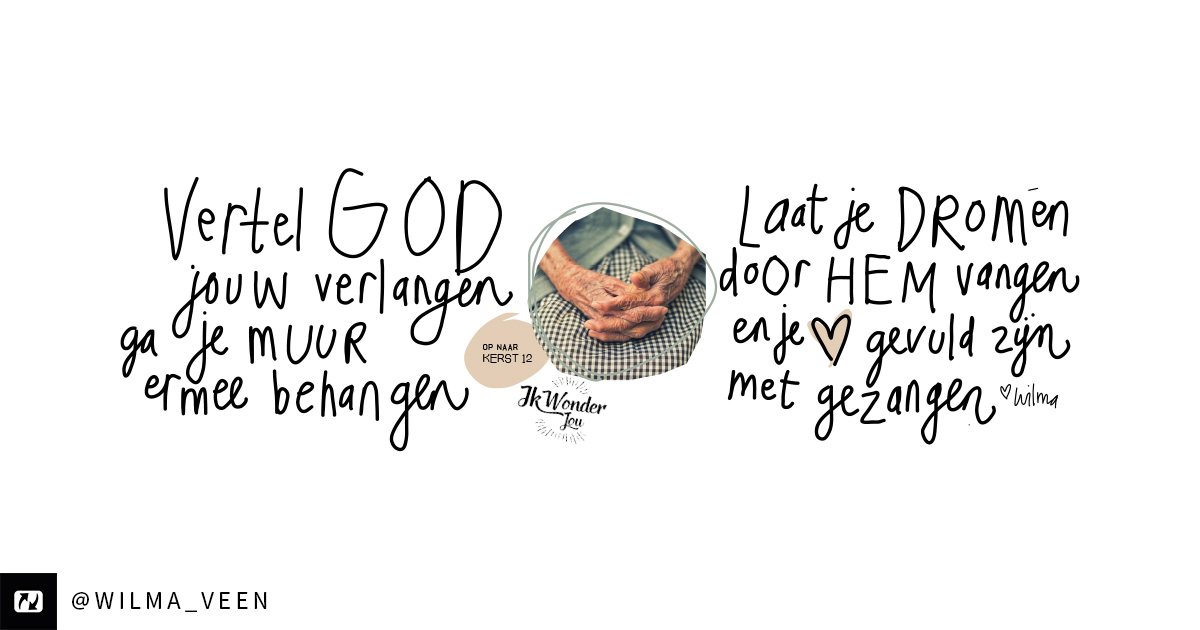 Vertel GOD
jouw verlangen
ga je MUUR
ermee behangen
OP NAAR
KERST 12
Ik Wonder
Jou
Laat je DROMEN
door HEM vangen
en je gevuld zijn
met gezangen
wilma
@WILMA_VEEN